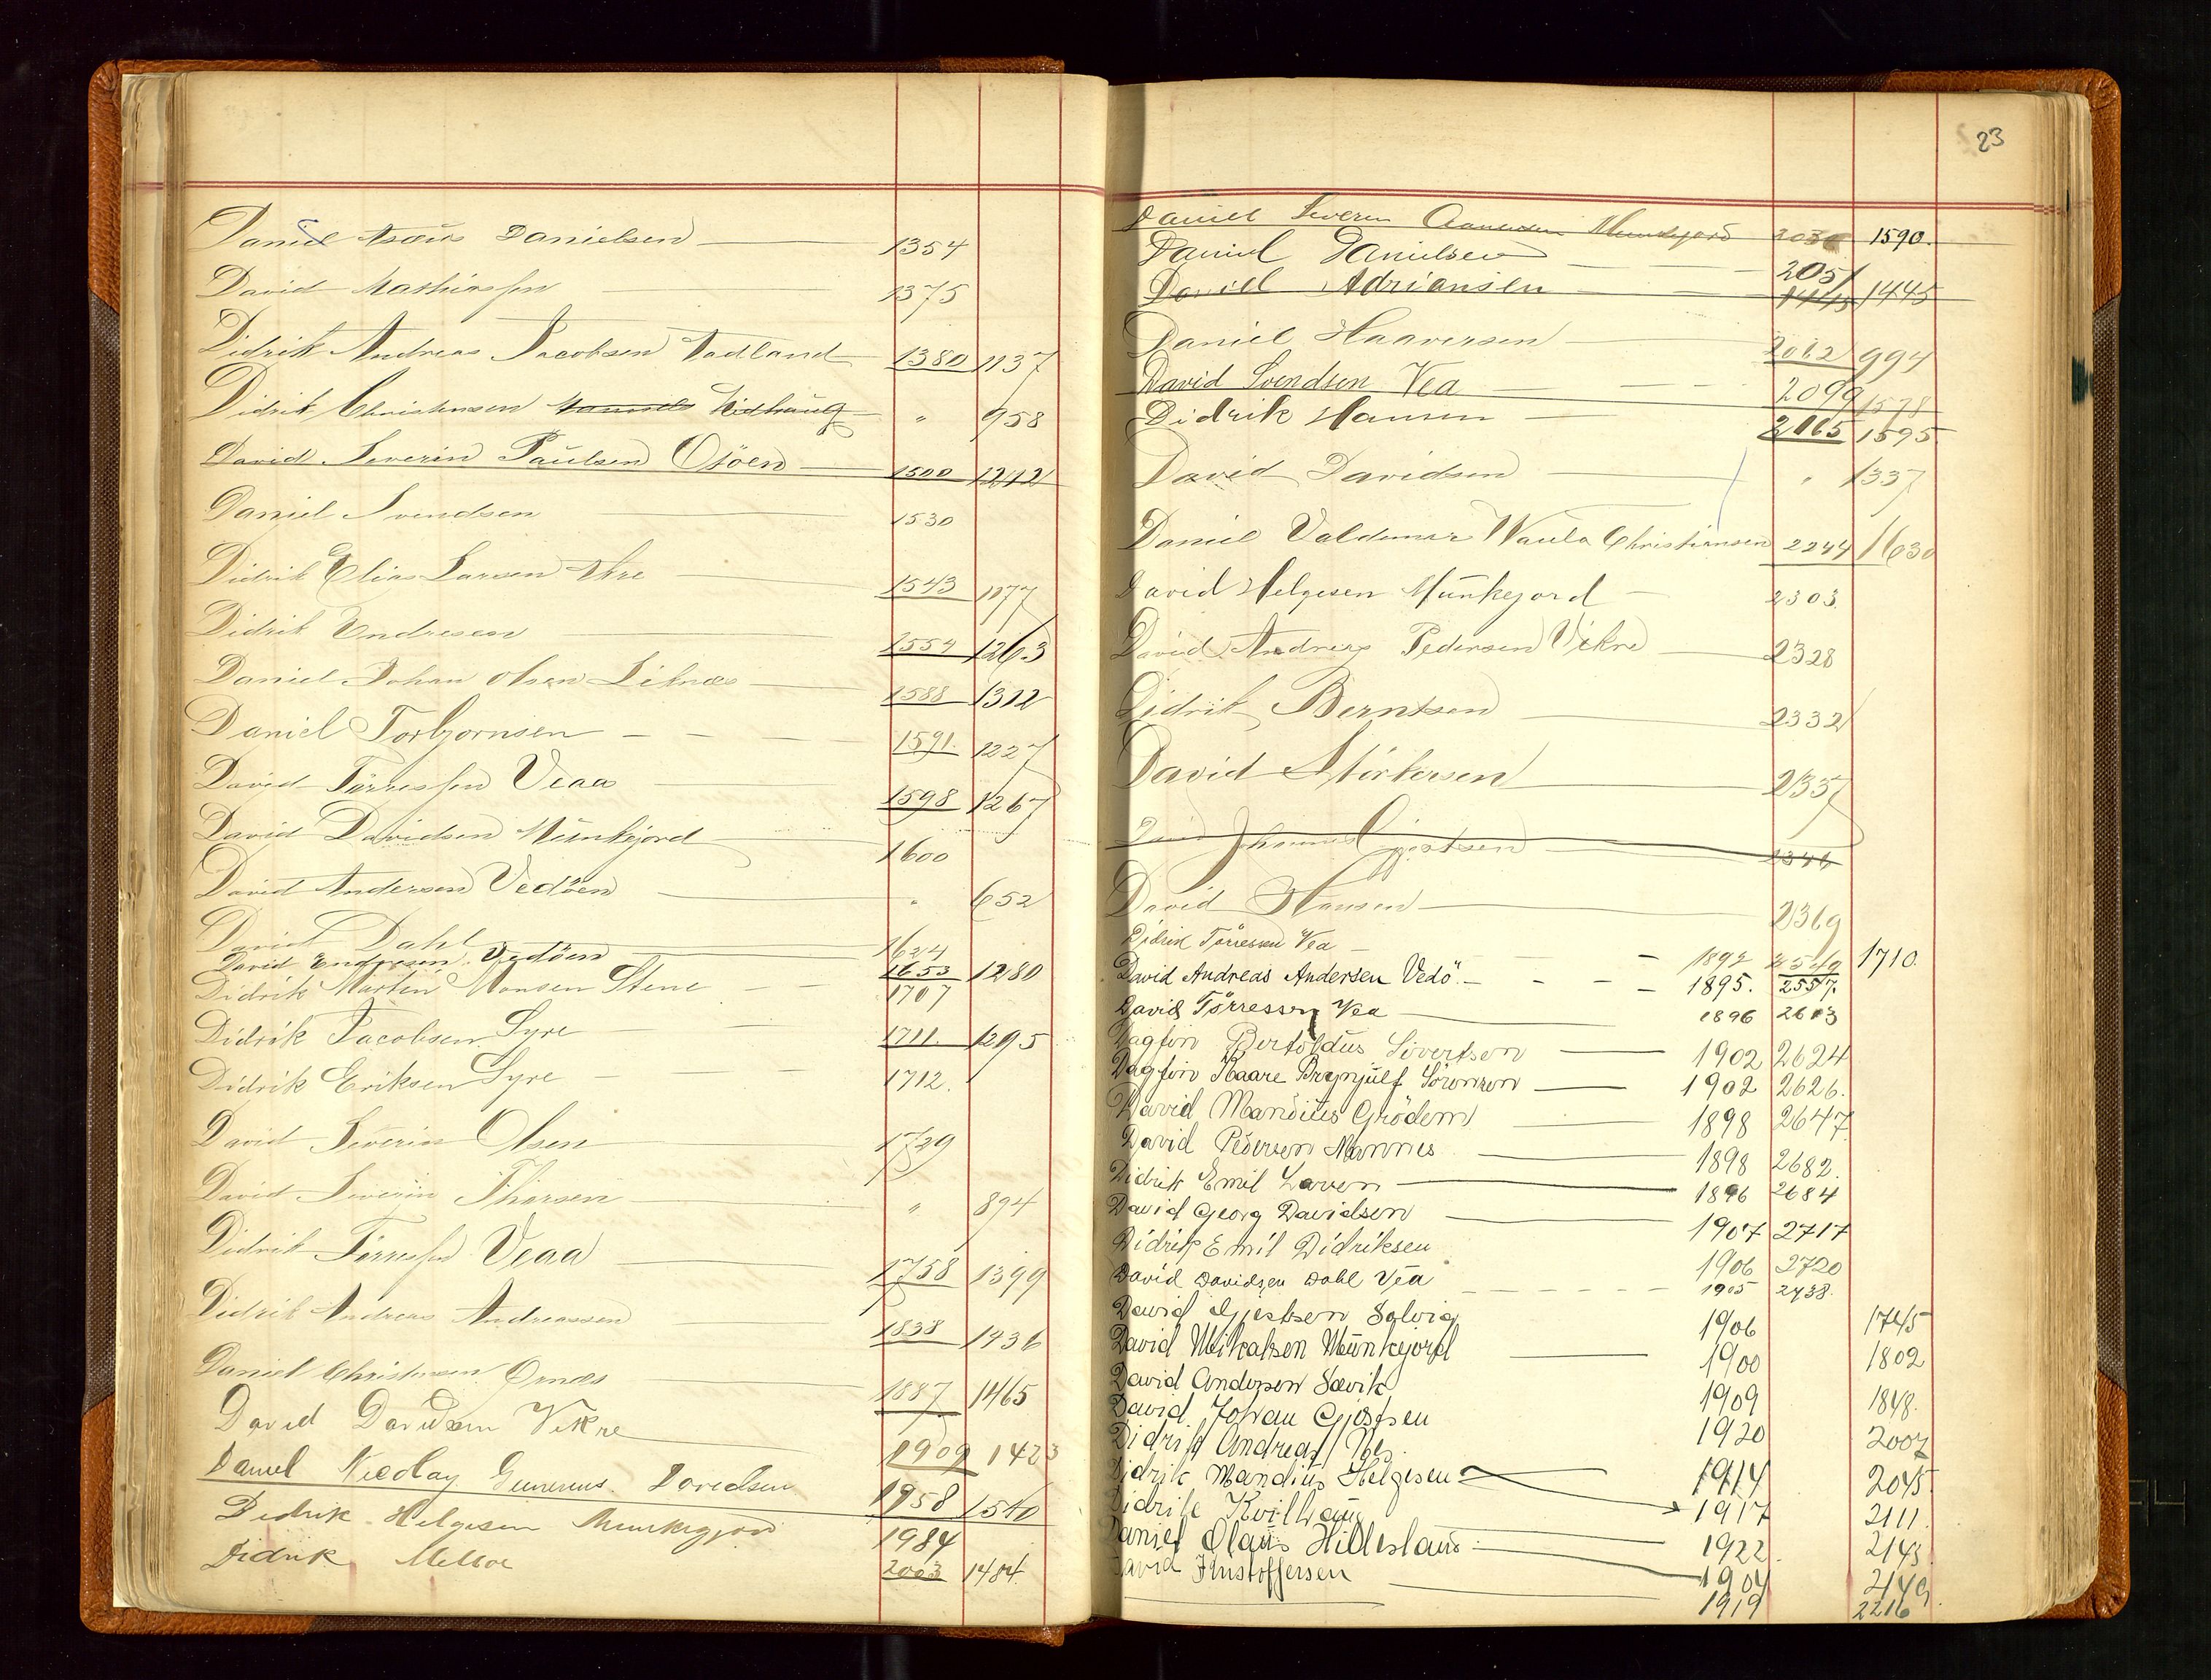 Daniel Danielsen 1354
David Mathiassen 1375
Didrik Andreas Jacobsen Vadland 1380 1137
Didrik Christensen " 958
David Severin Paulsen Osöen 1500 1212
Daniel Svendsen 1530
Didrik Elias Larsen 1543 1177
Didrik Endresen 1554 1263
Daniel Johan Olsen Liknæs 1588 1312
Daniel Torbjornsen 1591. 1227
David Törressen Veaa 1598 1267
David Davidsen Munkejord 1600
David Andersen Vedöen " 652
David Dahl 1624
David Endresen Vedöen 1653 1280
Didrik Martin Monsen Stene 1707
Didrik Jacobsen Syre 1711. 1295
Didrik Eriksen Syre 1712.
David Severin Olsen 1729
David Severin Thorsen " 894
Didrik Törressen Veaa 1758 1399
Didrik Andreas Andreassen 1838 1436
Daniel Christensen Ornes 1887 1465
David Davidsen Vikre 1909 1423
Daniel Nicolay Davidsen 1958 1540
Didrik Helgesen Munkejord 1984
Didrik 2003 1484.
23
Daniel Severin Munkejord 1590.
Daniel Danielsen 2051
David Adriansen 1445 1445
Daniel Haaversen 2062 994
David Svendsen Vea 2099 1578
Didrik Hansen 2165 1595
David Davidsen " 1337
Daniel Valdemar Christiansen 2244 1630
David Helgesen Munkejord 2303.
David Andreas Pedersen Vikre 2328
Didrik Berntsen 2332
David Störkersen 2337
David Johannes Gjertsen 2346
David Hansen 2369
Didrik Törressen Vea 1892 2549 1710.
David Andreas Andersen Vedö 1895. 2557.
David Törressen Vea 1896 2613
Dagfin Bertoldus Sivertsen 1902 2624
Dagfin Kaare Brynjulf 1902 2626.
David Mandius Grödem 1898 2647
David Pedersen Mannes 1898 2682.
Didrik Emil Larsen 1896 2684
David Georg Davidsen 1907 2717
Didrik Emil Didriksen 1906 2720
David Davidsen Dahl Vea 1905 2738.
David Gjertsen Solvig 1906 1745
David Mikalsen Munkejord 1900 1802
David Andersen Sævik 1909 1848.
David Johan Gjertsen 1920 2007
Didrik Andreas Nes. 1914 2045
Didrik Mandius Helgesen 1917 2111
Didrik Kvilhaug 1922. 2143
Daniel Olaus Hillesland 1904 2149.
David Kristoffersen 1919 2216